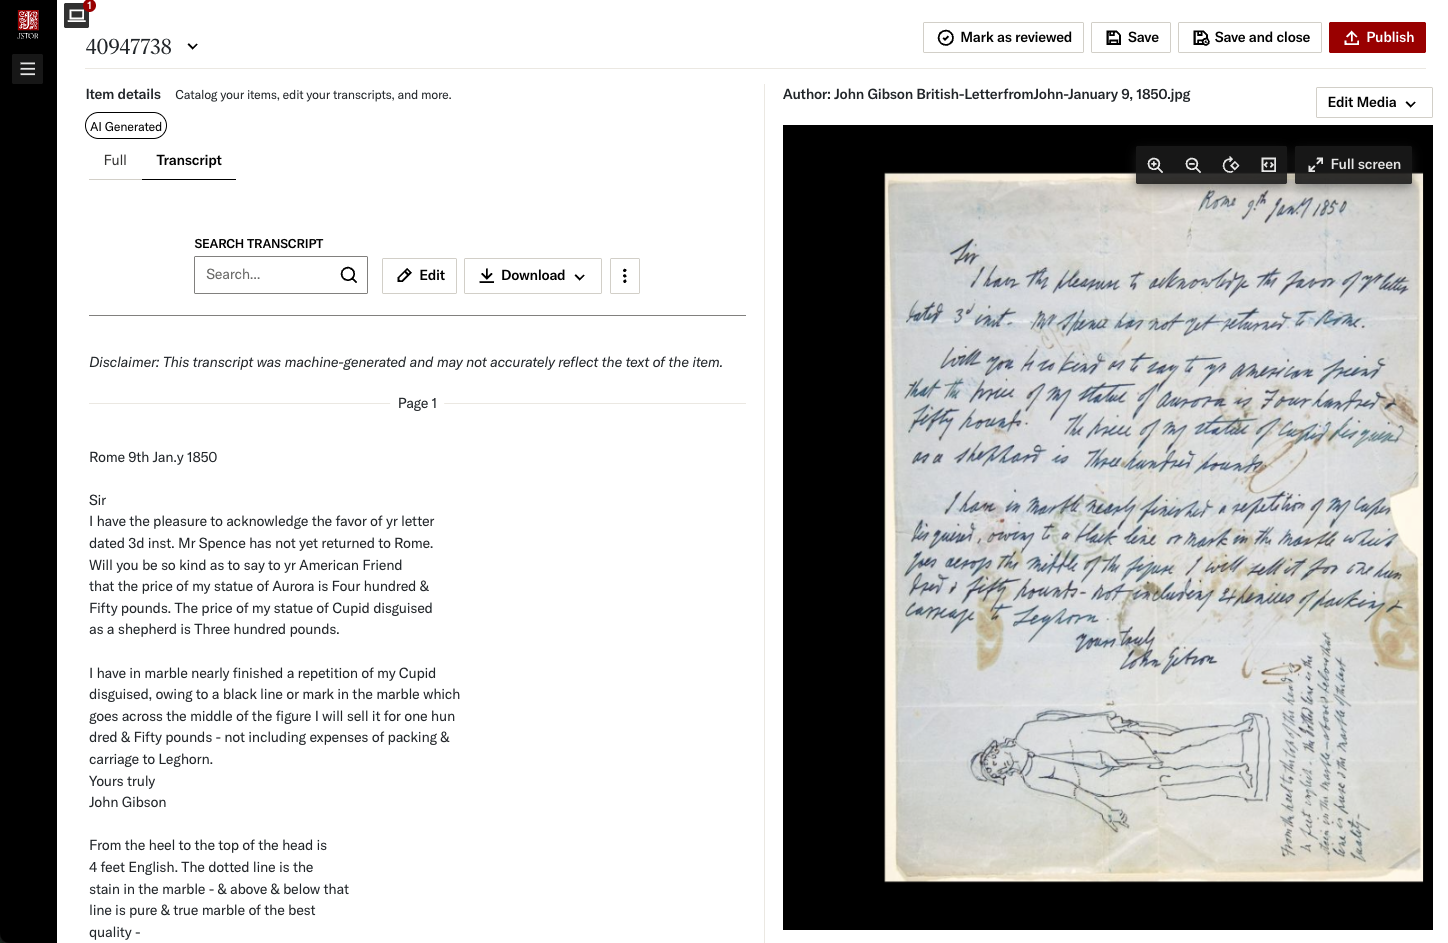 JSTOR
1
40947738
Mark as reviewed
Save
Save and close
Publish
Item details
Catalog your items, edit your transcripts, and more.
AI Generated
Full
Transcript
SEARCH TRANSCRIPT
Search...
Edit
Download
Disclaimer: This transcript was machine-generated and may not accurately reflect the text of the item.
Page 1
Rome 9th Jan.y 1850
Sir
I have the pleasure to acknowledge the favor of yr letter
dated 3d inst. Mr Spence has not yet returned to Rome.
Will you be so kind as to say to yr American Friend
that the price of my statue of Aurora is Four hundred &
Fifty pounds. The price of my statue of Cupid disguised
as a shepherd is Three hundred pounds.
I have in marble nearly finished a repetition of my Cupid
disguised, owing to a black line or mark in the marble which
goes across the middle of the figure I will sell it for one hun
dred & Fifty pounds - not including expenses of packing &
carriage to Leghorn.
Yours truly
John Gibson
From the heel to the top of the head is
4 feet English. The dotted line is the
stain in the marble - & above & below that
line is pure & true marble of the best
quality -
Author: John Gibson British-LetterfromJohn-January 9, 1850.jpg
Edit Media
Full screen
Rome 9th Jany 1850
Sir
I have the pleasure to acknowledge the favor of yr letter
dated 3d inst. Mr Spence has not yet returned to Rome.
Will you be so kind as to say to yr American friend
that the price of my statue of Aurora is Four hundred &
fifty pounds. The price of my statue of Cupid disguised
as a shephard is Three hundred pounds.
I have in marble nearly finished a repetition of my Cupid
disguised, owing to a black line or mark in the marble which
goes across the middle of the figure I will sell it for one hun
dred & fifty pounds - not including expenses of packing &
carriage to Leghorn.
yours truly
John Gibson
From the heel to the top of the head is
feet english. The dotted line is the
stain in the marble - above & below that
line is pure & the marble of the best
quality -